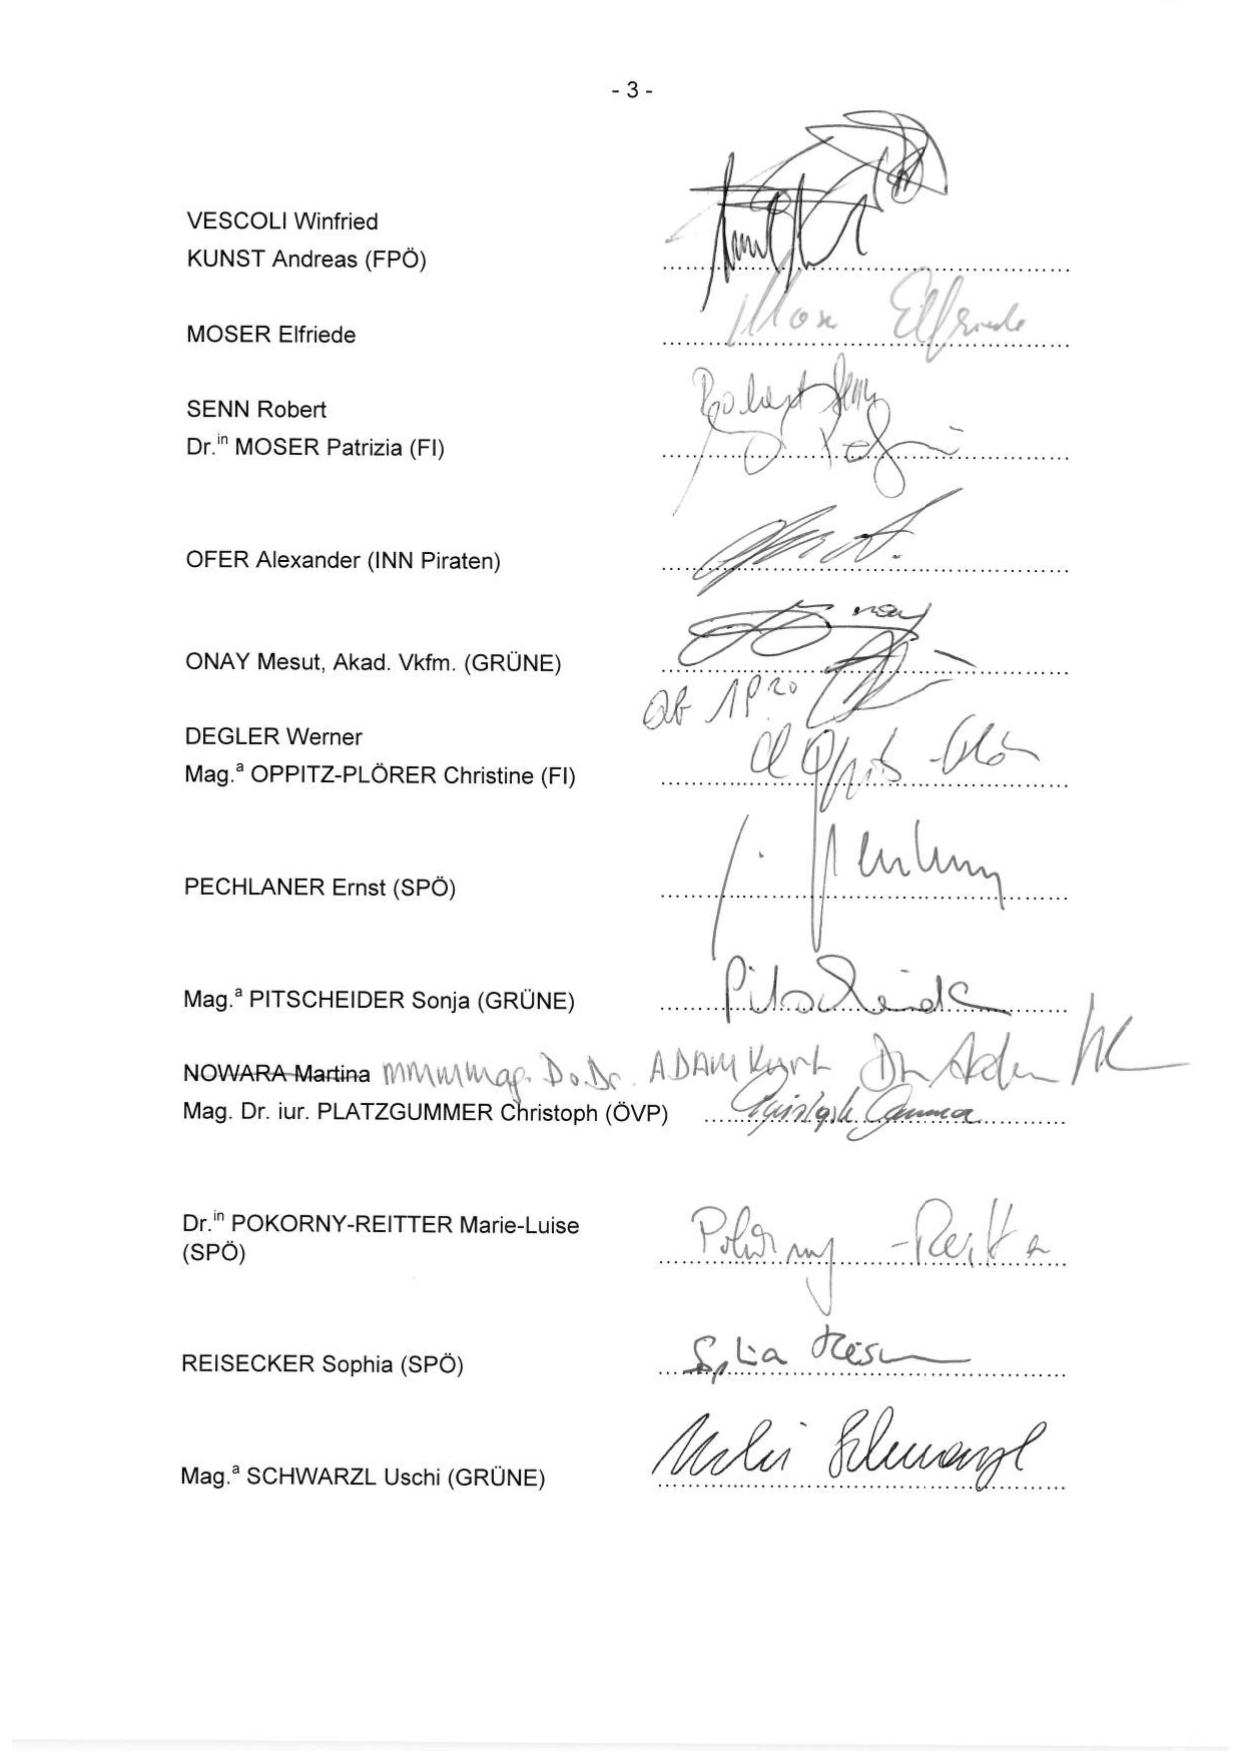 - 3 -
VESCOLI Winfried
KUNST Andreas (FPÖ)
MOSER Elfriede
Moser Elfriede
SENN Robert
Robert Senn
Dr.in MOSER Patrizia (FI)
OFER Alexander (INN Piraten)
ONAY Mesut, Akad. Vkfm. (GRÜNE)
DEGLER Werner
Mag.a OPPITZ-PLÖRER Christine (FI)
PECHLANER Ernst (SPÖ)
Mag.a PITSCHEIDER Sonja (GRÜNE) Pitscheider
NOWARA Martina MMMMMag. DDr. ADAM Kurt
Mag. Dr. iur. PLATZGUMMER Christoph (ÖVP)
Dr.in POKORNY-REITTER Marie-Luise Pokorny-Reitter
(SPÖ)
REISECKER Sophia (SPÖ) Sophia
Mag.a SCHWARZL Uschi (GRÜNE) Schwarzl